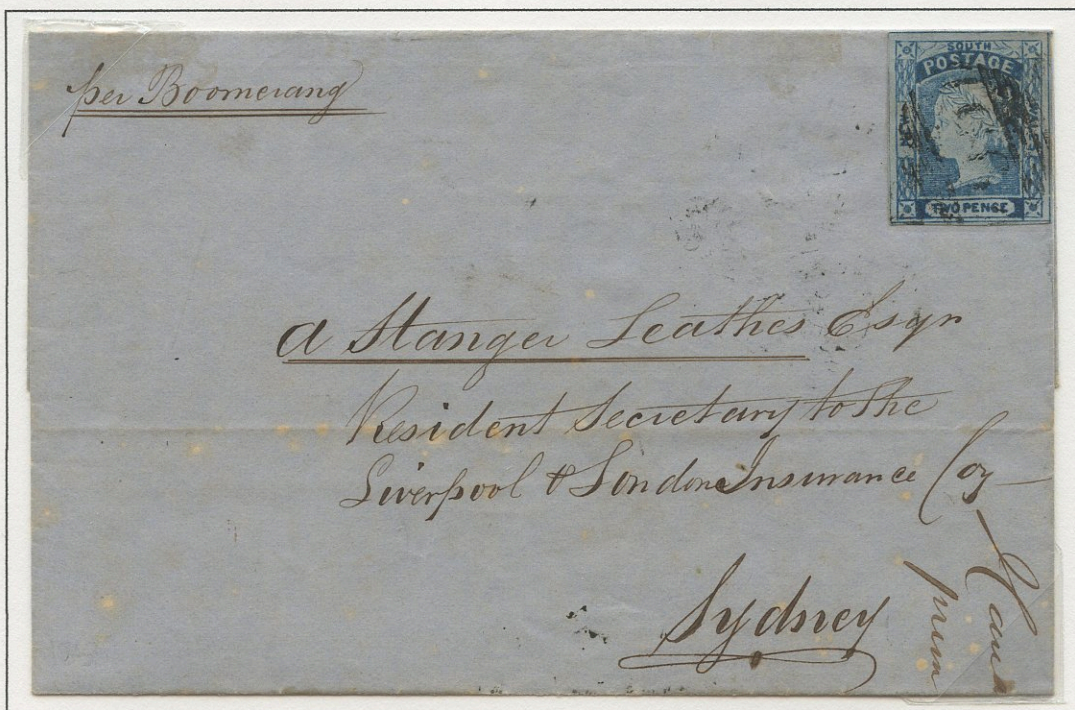 per Boomerang
SOUTH
POSTAGE
TWO PENSE
A Stanger Leathes Esqr
Resident Secretary to the
Liverpool & London Insurance Coy
Sydney